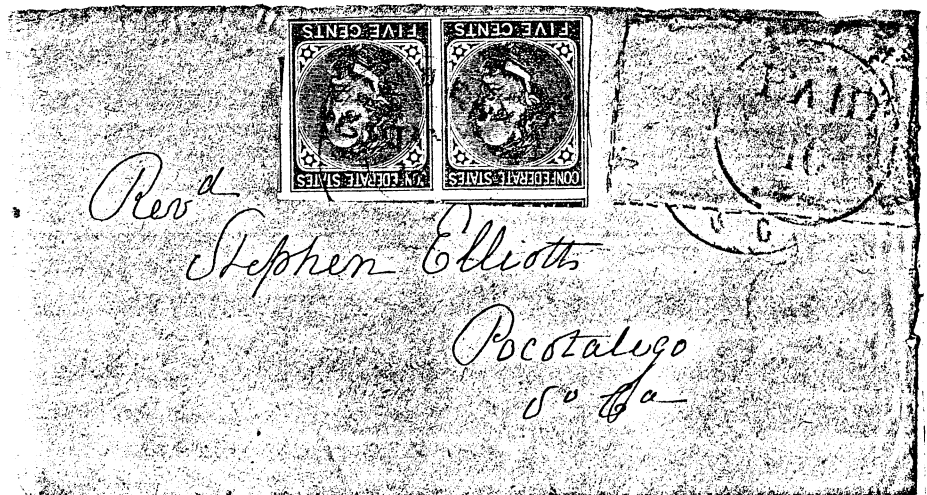 FIVE CENTS
FIVE CENTS
CONFEDERATE STATES
PAID
10
C
Rev^d
Stephen Elliott
Pocotaligo
So Ca